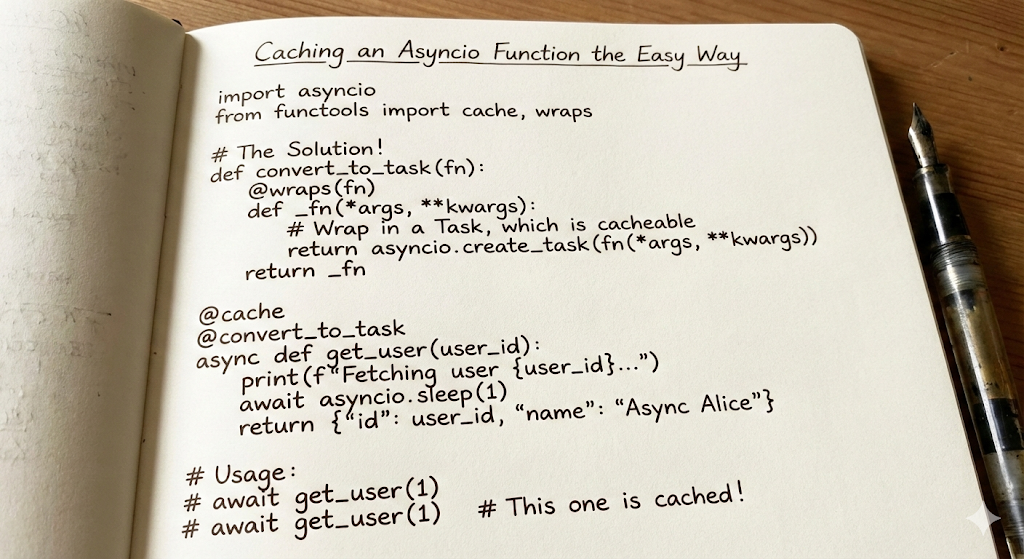 Caching an Asyncio Function the Easy Way
import asyncio
from functools import cache, wraps
# The Solution!
def convert_to_task(fn):
    @wraps(fn)
    def _fn(*args, **kwargs):
        # Wrap in a Task, which is cacheable
        return asyncio.create_task(fn(*args, **kwargs))
    return _fn
@cache
@convert_to_task
async def get_user(user_id):
    print(f“Fetching user {user_id}...”)
    await asyncio.sleep(1)
    return {“id”: user_id, “name”: “Async Alice”}
# Usage:
# await get_user(1)
# await get_user(1)    # This one is cached!